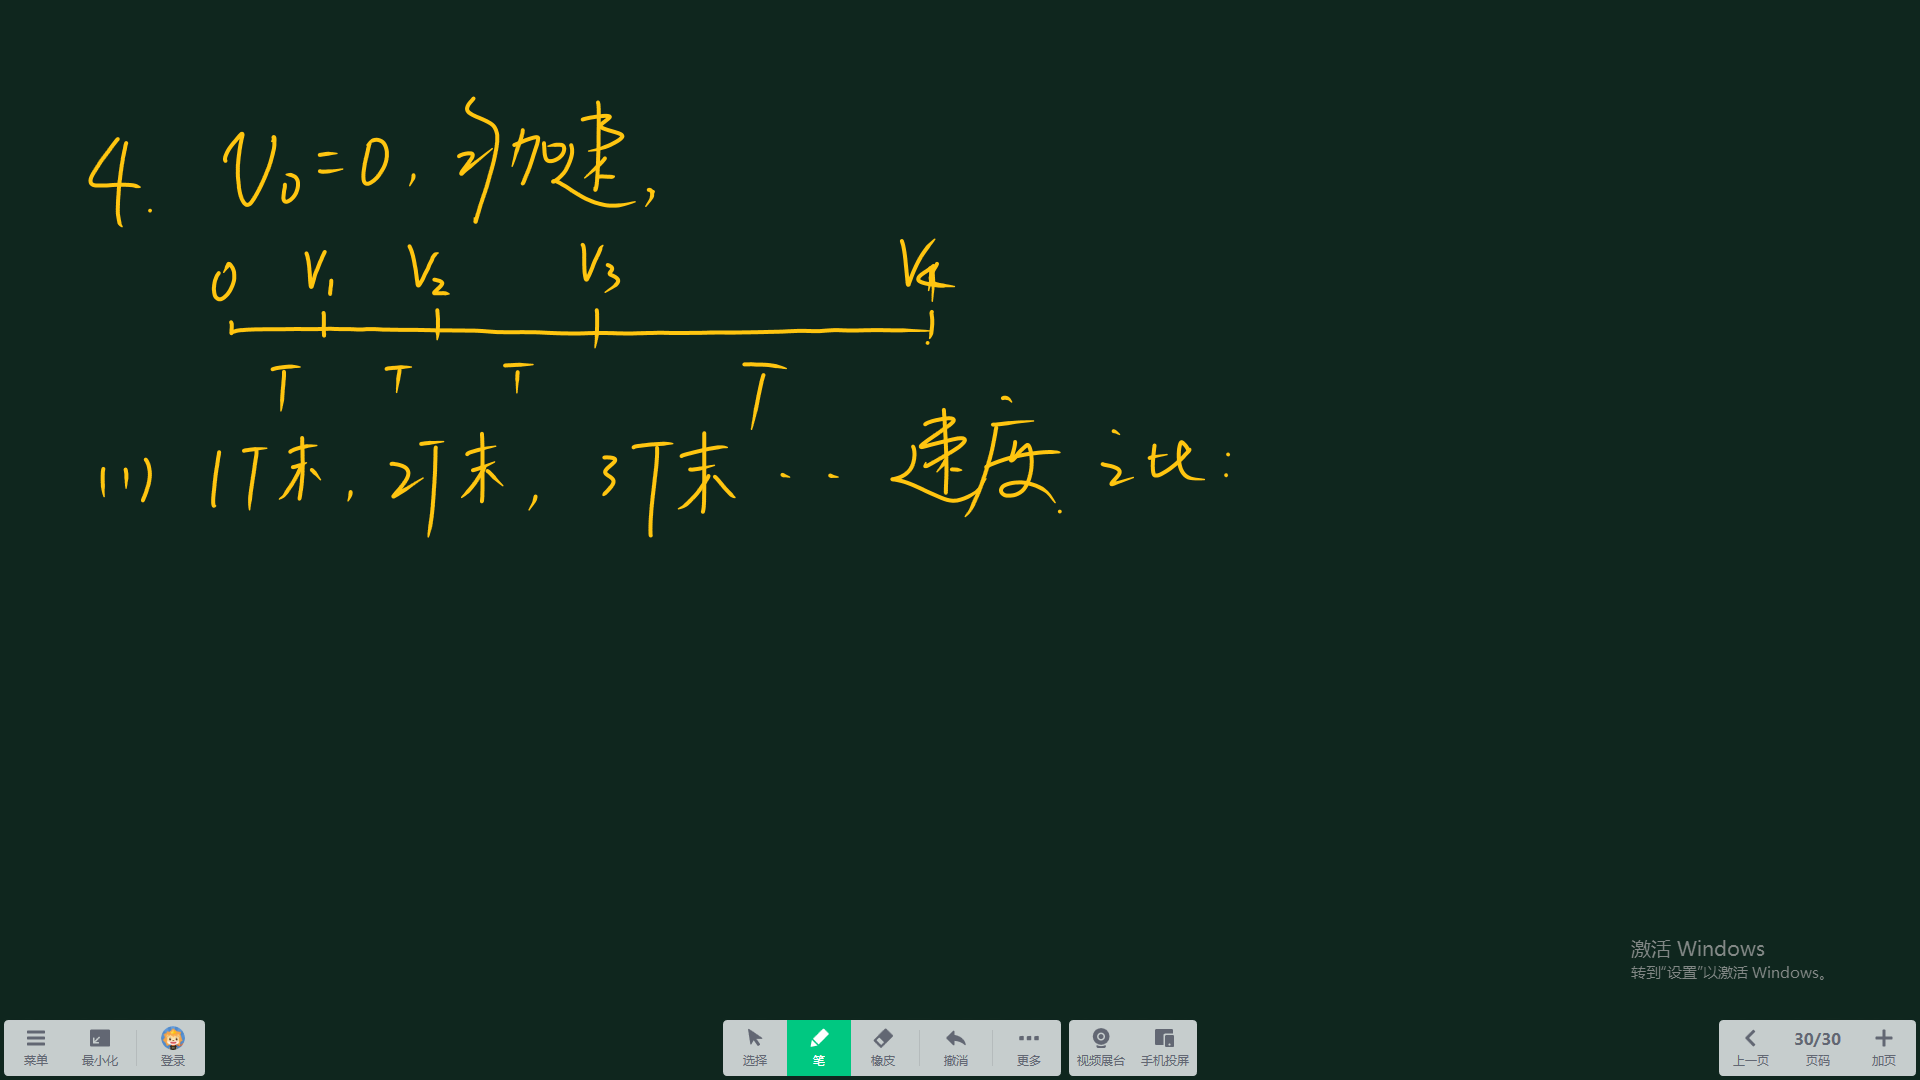 4. V₀=0, 匀加速,
0 V₁ V₂ V₃ V₄
T T T T
(1) 1T末, 2T末, 3T末 ·· 速度之比:
激活 Windows
转到“设置”以激活 Windows。
菜单 最小化 登录 选择 笔 橡皮 撤消 更多 视频展台 手机投屏 上一页 30/30 页码 加页